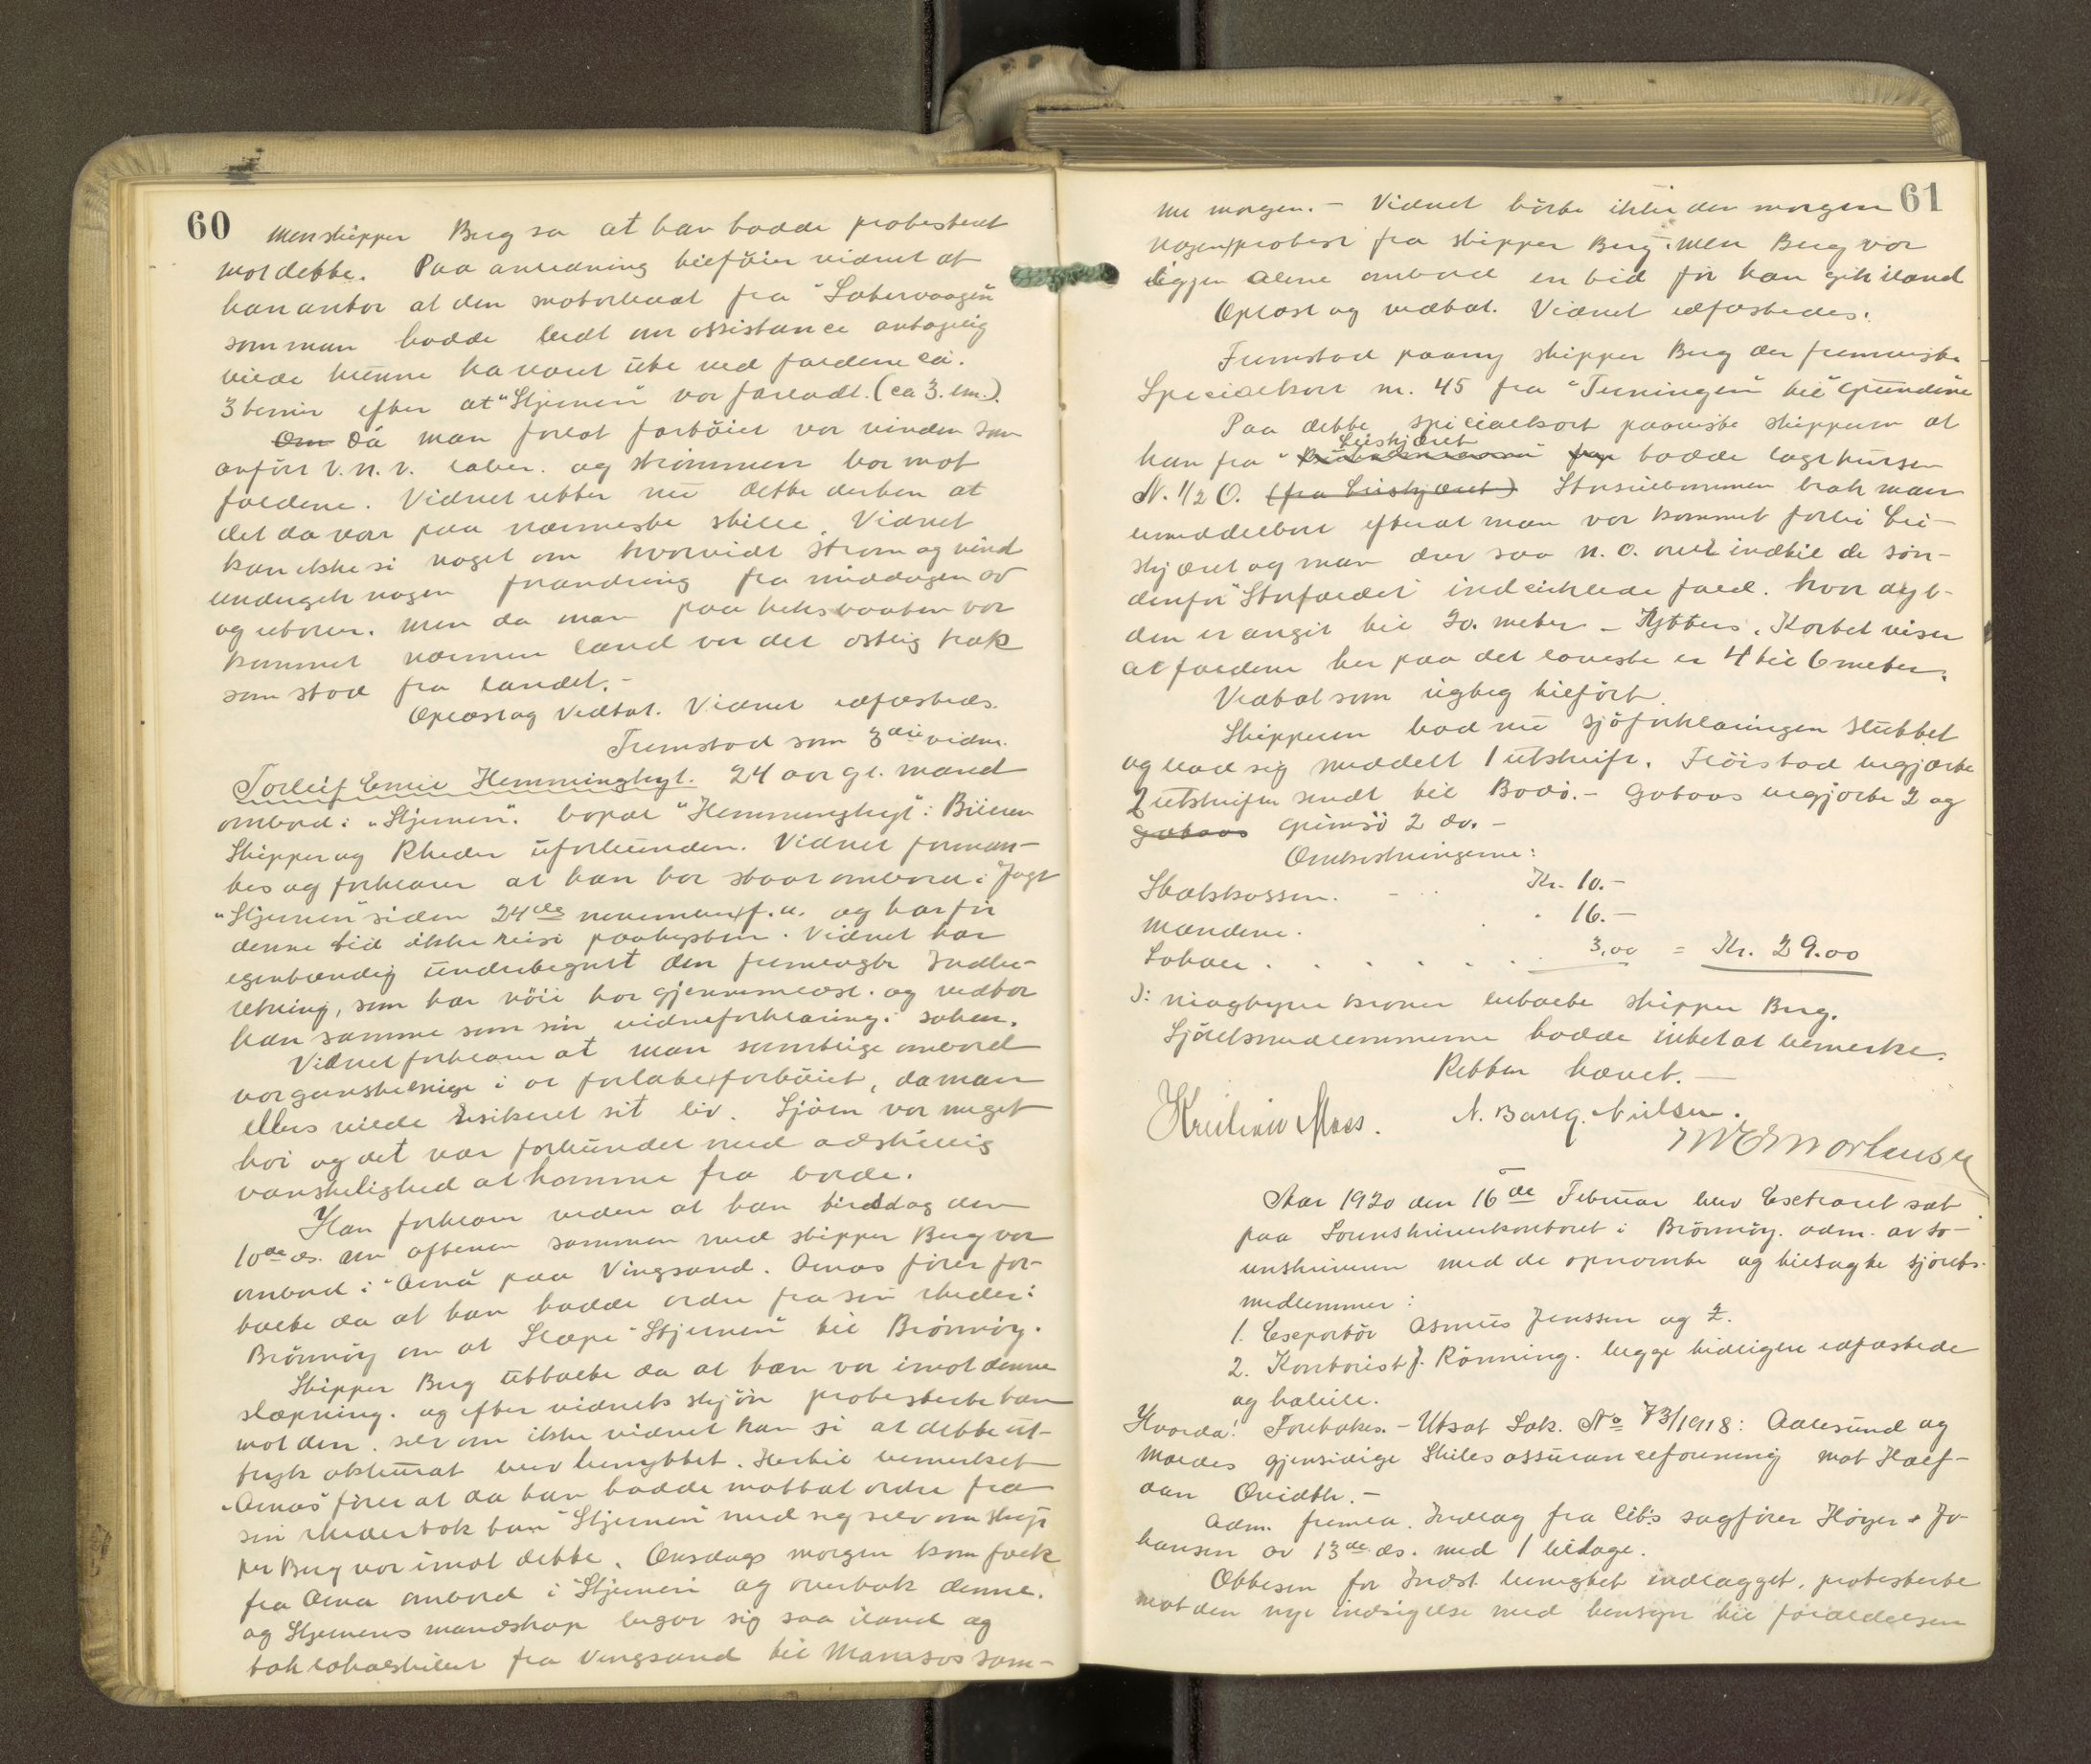 60
men skipper Berg sa at han hadde protestert
mot dette. Paa anledning tilføier vidnet at
han antar at den motorbaat fra "Sætervaagen"
som man hadde bedt om assistance antagelig
vilde kunne ha været ute ved faldene ca.
3 timer efter at "Stjernen" var forladt. (ca 3. em.).
Om Da man forlot fartøiet var vinden som
anført V.N.V. laber. og strømmen bar mot
faldene. Vidnet retter nu dette derhen at
det da var paa nærmeste stille. Vidnet
kan ikke si noget om hvorvidt strøm og vind
undergik nogen forandring fra middagen av
og utover. Men da man paa livbaaten var
kommet nærmere land var det østlig træk
som stod fra landet.-
Oplæst og Vedtat. Vidnet edfæstedes.
Fremstod som 3die vidne.
Torleif Emil Hemminghyt. 24 aar gl. mand
ombord i "Stjernen". bopæl "Hemminghyt" i Bilien
Skipper og Rheder uforbunden. Vidnet forman-
tes og forklarer at han har staat ombord i Jagt
"Stjernen" siden 24de november f.a. og har før
denne tid ikke reist paa kysten. Vidnet har
egenhændig underteget den fremlagte Indbe-
retning, som han nøie har gjennemlæst. og vedtar
han samme som sin vidneforklaring i saken.
Vidnet forklarer at man samtlige ombord
var ganske enige i at forlate fartøiet, da man
ellers vilde risikeret sit liv. Sjøen var meget
høi og det var forbundet med adskillig
vanskelighed at komme fra borde.
Han forklarer videre at han tirsdag den
10de ds. om aftenen sammen med skipper Berg var
ombord i "Arna" paa Vingsand. Arnas fører for-
talte da at han hadde ordre fra sin rheder i
Brønnøy om at Slæpe "Stjernen" til Brønnøy.
Skipper Berg uttalte da at han var imot denne
slæpning. og efter vidnets skjøn protesterte han
mot den. selv om ikke vidnet kan si at dette ut-
tryk akkurat blev benyttet. Hertil bemerket
"Arnas" fører at da han hadde mottat ordre fra
sin rheder tok han "Stjernen" med sig selv om skip
per Berg var imot dette. Onsdags morgen kom folk
fra Arna ombord i "Stjernen" og overtok denne.
og Stjernens mandskap begav sig saa iland og
tok lokalskibet fra Vingsand til Namsos sam-
61
me morgen. - Vidnet hørte ikke den morgen
nogen protest fra skipper Berg. men Berg var
liggen alene ombord en tid før han gik iland
Oplæst og vedtat. Vidnet edfæstedes.
Fremstod paany skipper Berg der fremviste
Specialkart nr. 45 fra "Terningen" til "Grundene
Paa dette specialkart paaviste skipperen at
Leiskjæret
han fra " hadde lagt kursen
N. 1/2 O. (fra Leiskjæret) Storseilbommen brak man
umiddelbart efterat man var kommet forbi Lei-
skjæret og man drev saa N.O. over indtil de søn-
denfor "Storfaldet" indcirklede fald. hvor dyb-
den er angit til 20. meter - Kotters. Kartet viser
at faldene her paa det laveste er 4 til 6 meter.
Vedtat som rigtig tilført.
Skipperen bad nu sjøforklaringen sluttet
og bad sig meddelt 1 utskrift. Fløistad begjærte
2 utskrifter sendt til Bodø. - Gabaas begjærte 2 og
Gabaas Grimsø 2 do. -
Omkostningerne:
Statskassen. - . . Kr. 10.-
Mændene. . " 16.-
Lokale . . . . . . . 3,00 = Kr. 29.00
ɔ: niogtyve kroner betalte skipper Berg.
Sjøretsmedlemmerne hadde intet at bemerke.
Retten hævet. -
Kristian Moes. N. Bang. Nielsen.
M E Mortensen
Aar 1920 den 16de Februar blev Extraret sat
paa Sorenskriverkontoret i Brønnøy. adm. av So-
renskriveren med de opnævnte og tilsagte sjørets-
medlemmer:
1. Exportør Asmus Jenssen og 2.
2. Kontorist J. Rønning. begge tidligere edfæstede
og habile.
Hvorda! Foretokes. - Utsat Sak. No 73/1918: Aalesund og
Møres gjensidige Skibsassuranceforening mot Half-
dan Qvidth. -
Adm. freml. Indlæg fra Cit:s sagfører Høyer & Jo-
hansen av 13de ds. med 1 bilage.
Ottesen for Indst. benegtet indlægget, protesterte
mot den nye indsigelse med hensyn til forældelsen